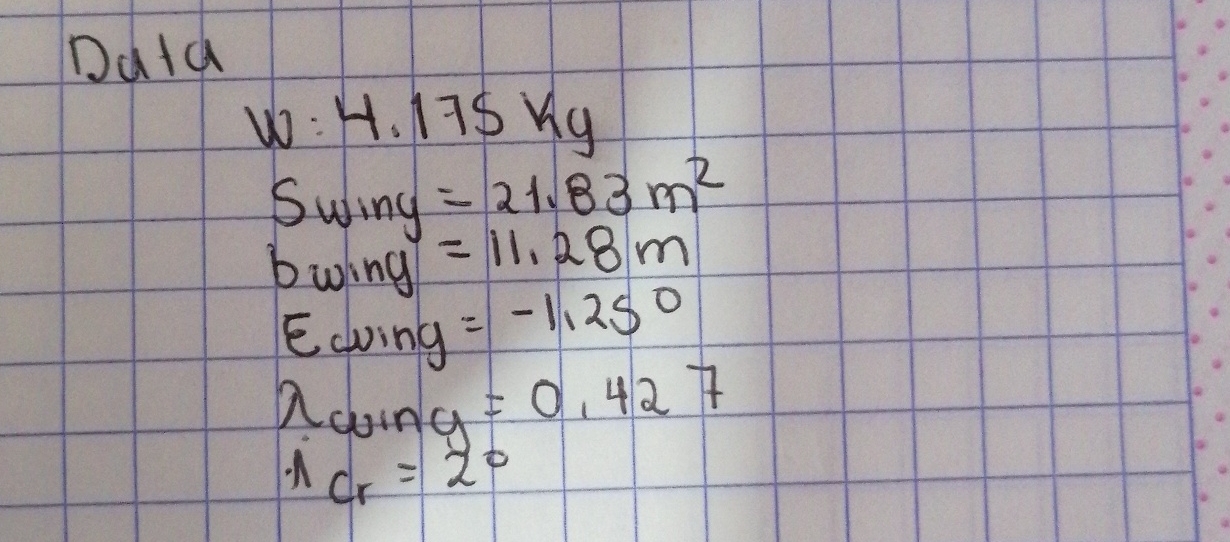 Data
W: 4.175 Kg
Swing = 21.83 m²
bwing = 11.28 m
Ewing = -1.25°
λwing = 0.427
icr = 2°